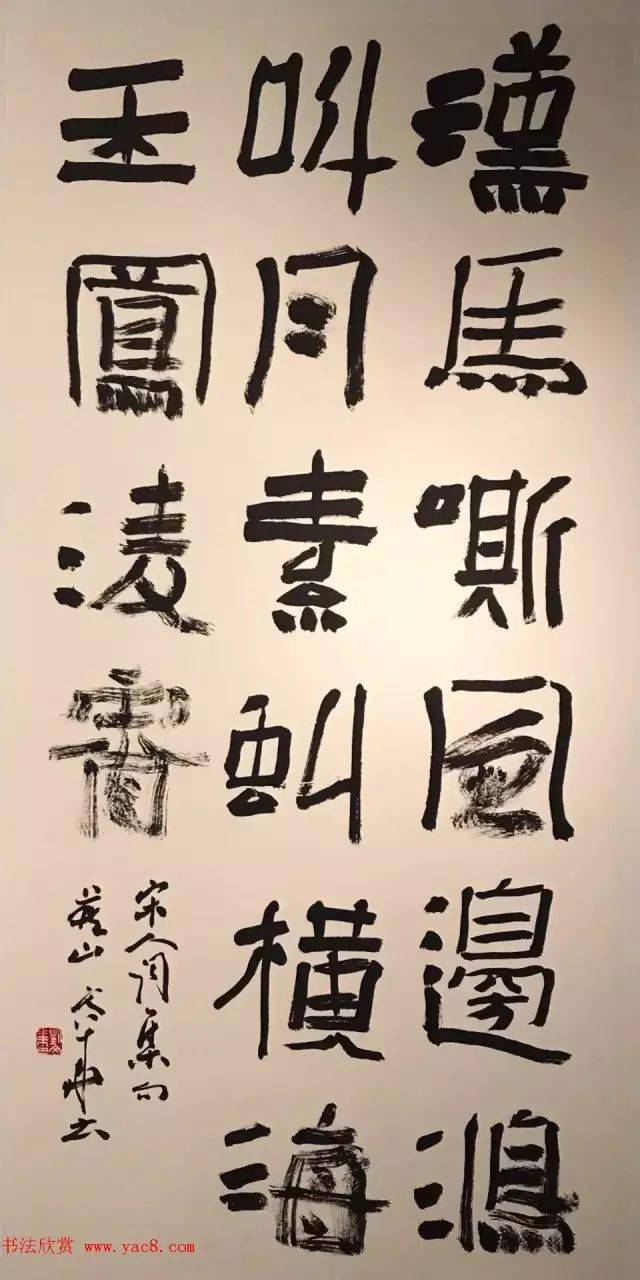 漢馬嘶風邊鴻
叫月素虬橫海
玉鳳凌霄
宋人詞集句
山
书法欣赏 www.yac8.com